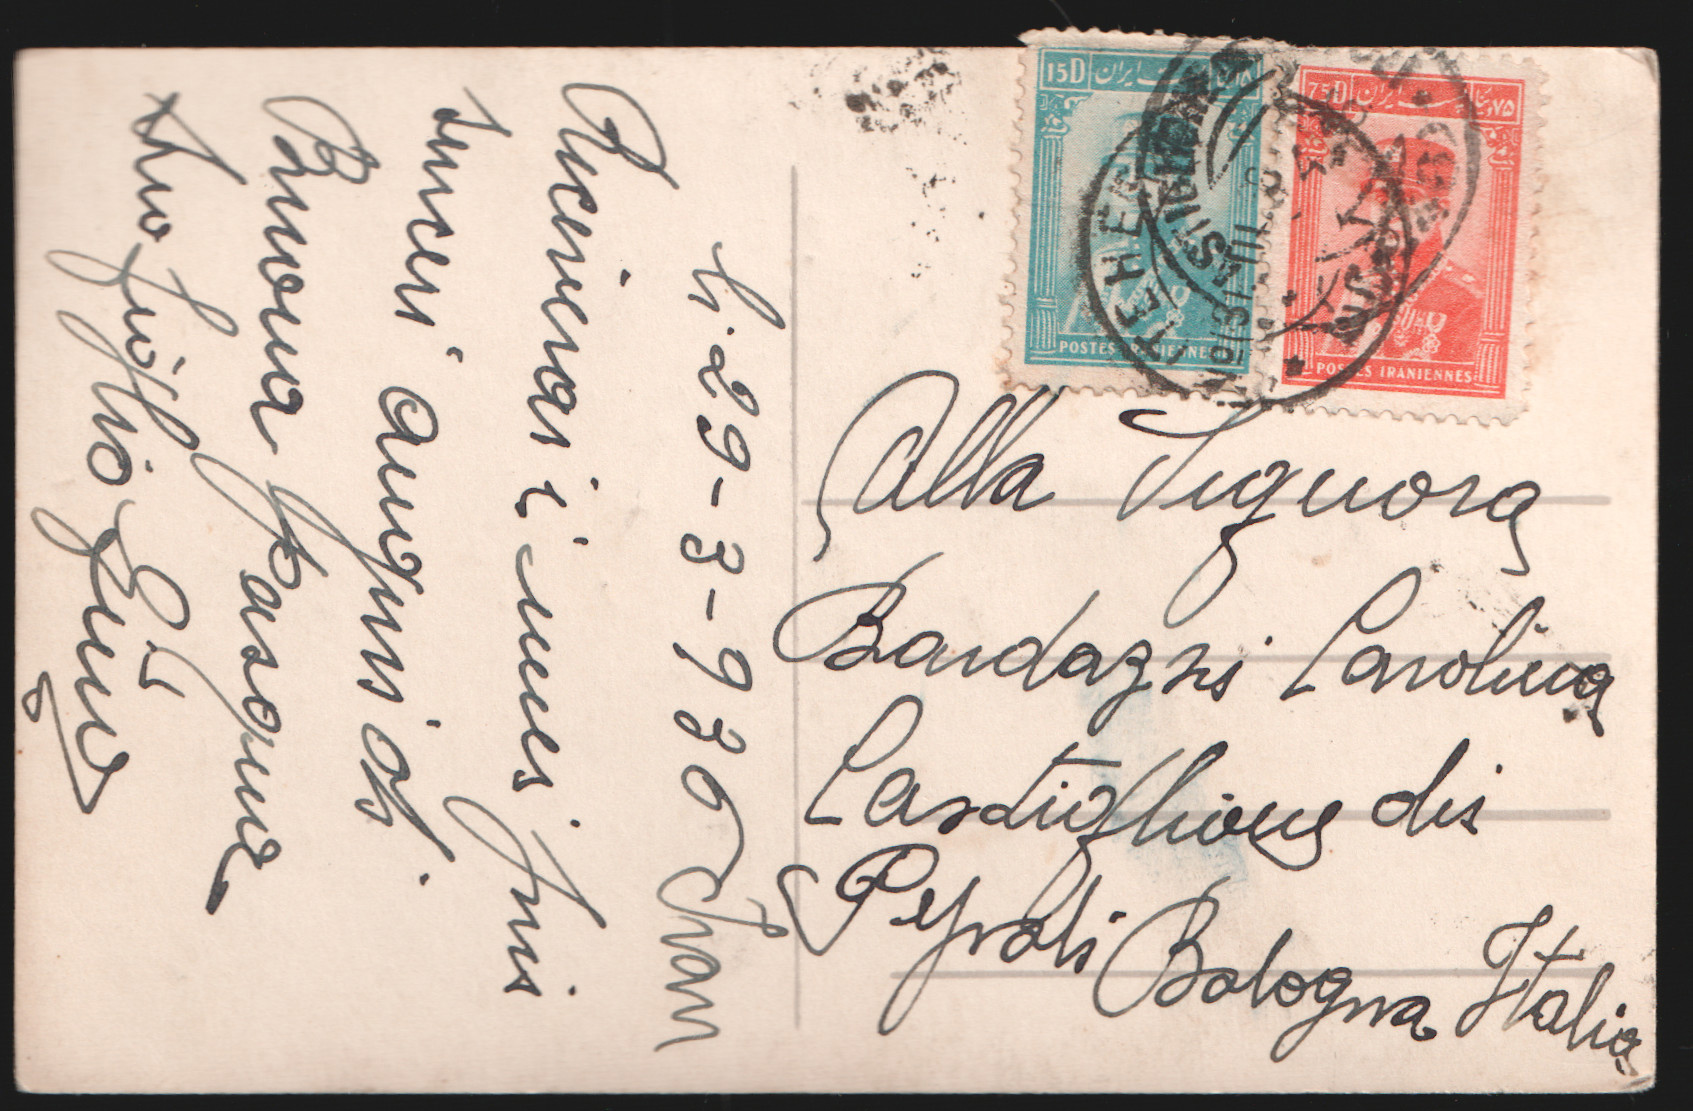 li. 29-3-936 Iran
Riceverai i miei più
sinceri auguri di
Buona Pasqua
tuo figlio
Gino
15D
ایران
POSTES IRANIENNES
75D
ایران
۷۵
POSTES IRANIENNES
TEHERAN
Alla Signora
Bardazzi Carolina
Castiglione dei
Pepoli Bologna Italia